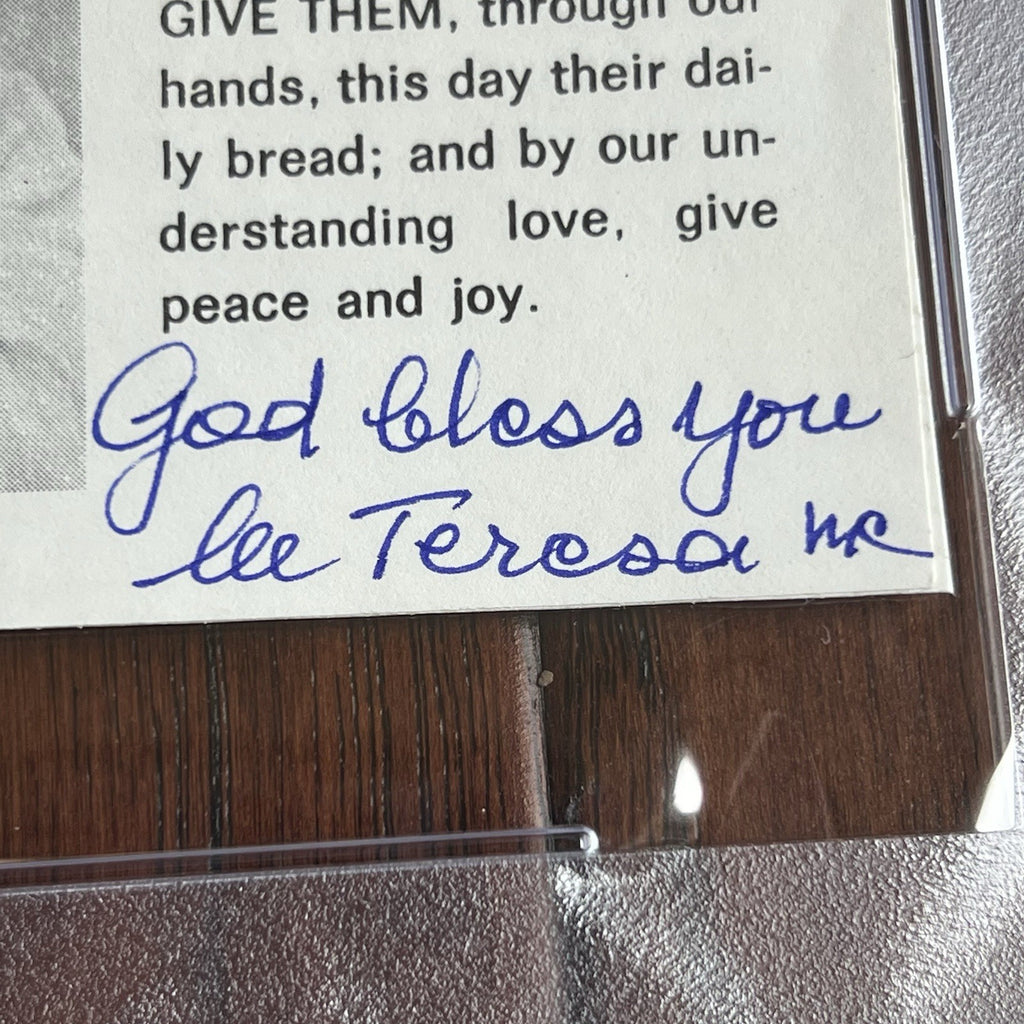 GIVE THEM, through our
hands, this day their dai-
ly bread; and by our un-
derstanding love, give
peace and joy.
God bless you
lee Teresa mc